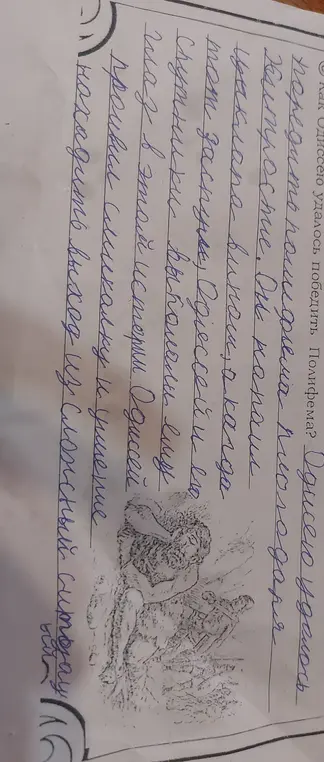 Как Одиссею удалось победить Полифема? Одисею удалось
передить полифема благодаря
Хитрости. Он напоил
циклопа вином, а когда
тот заснул, Одиссей и его
спутники выкололи ему
глаз в этой истории Одисей
проявил смикалку и умение
находить выход из сложный ситуац
ыи